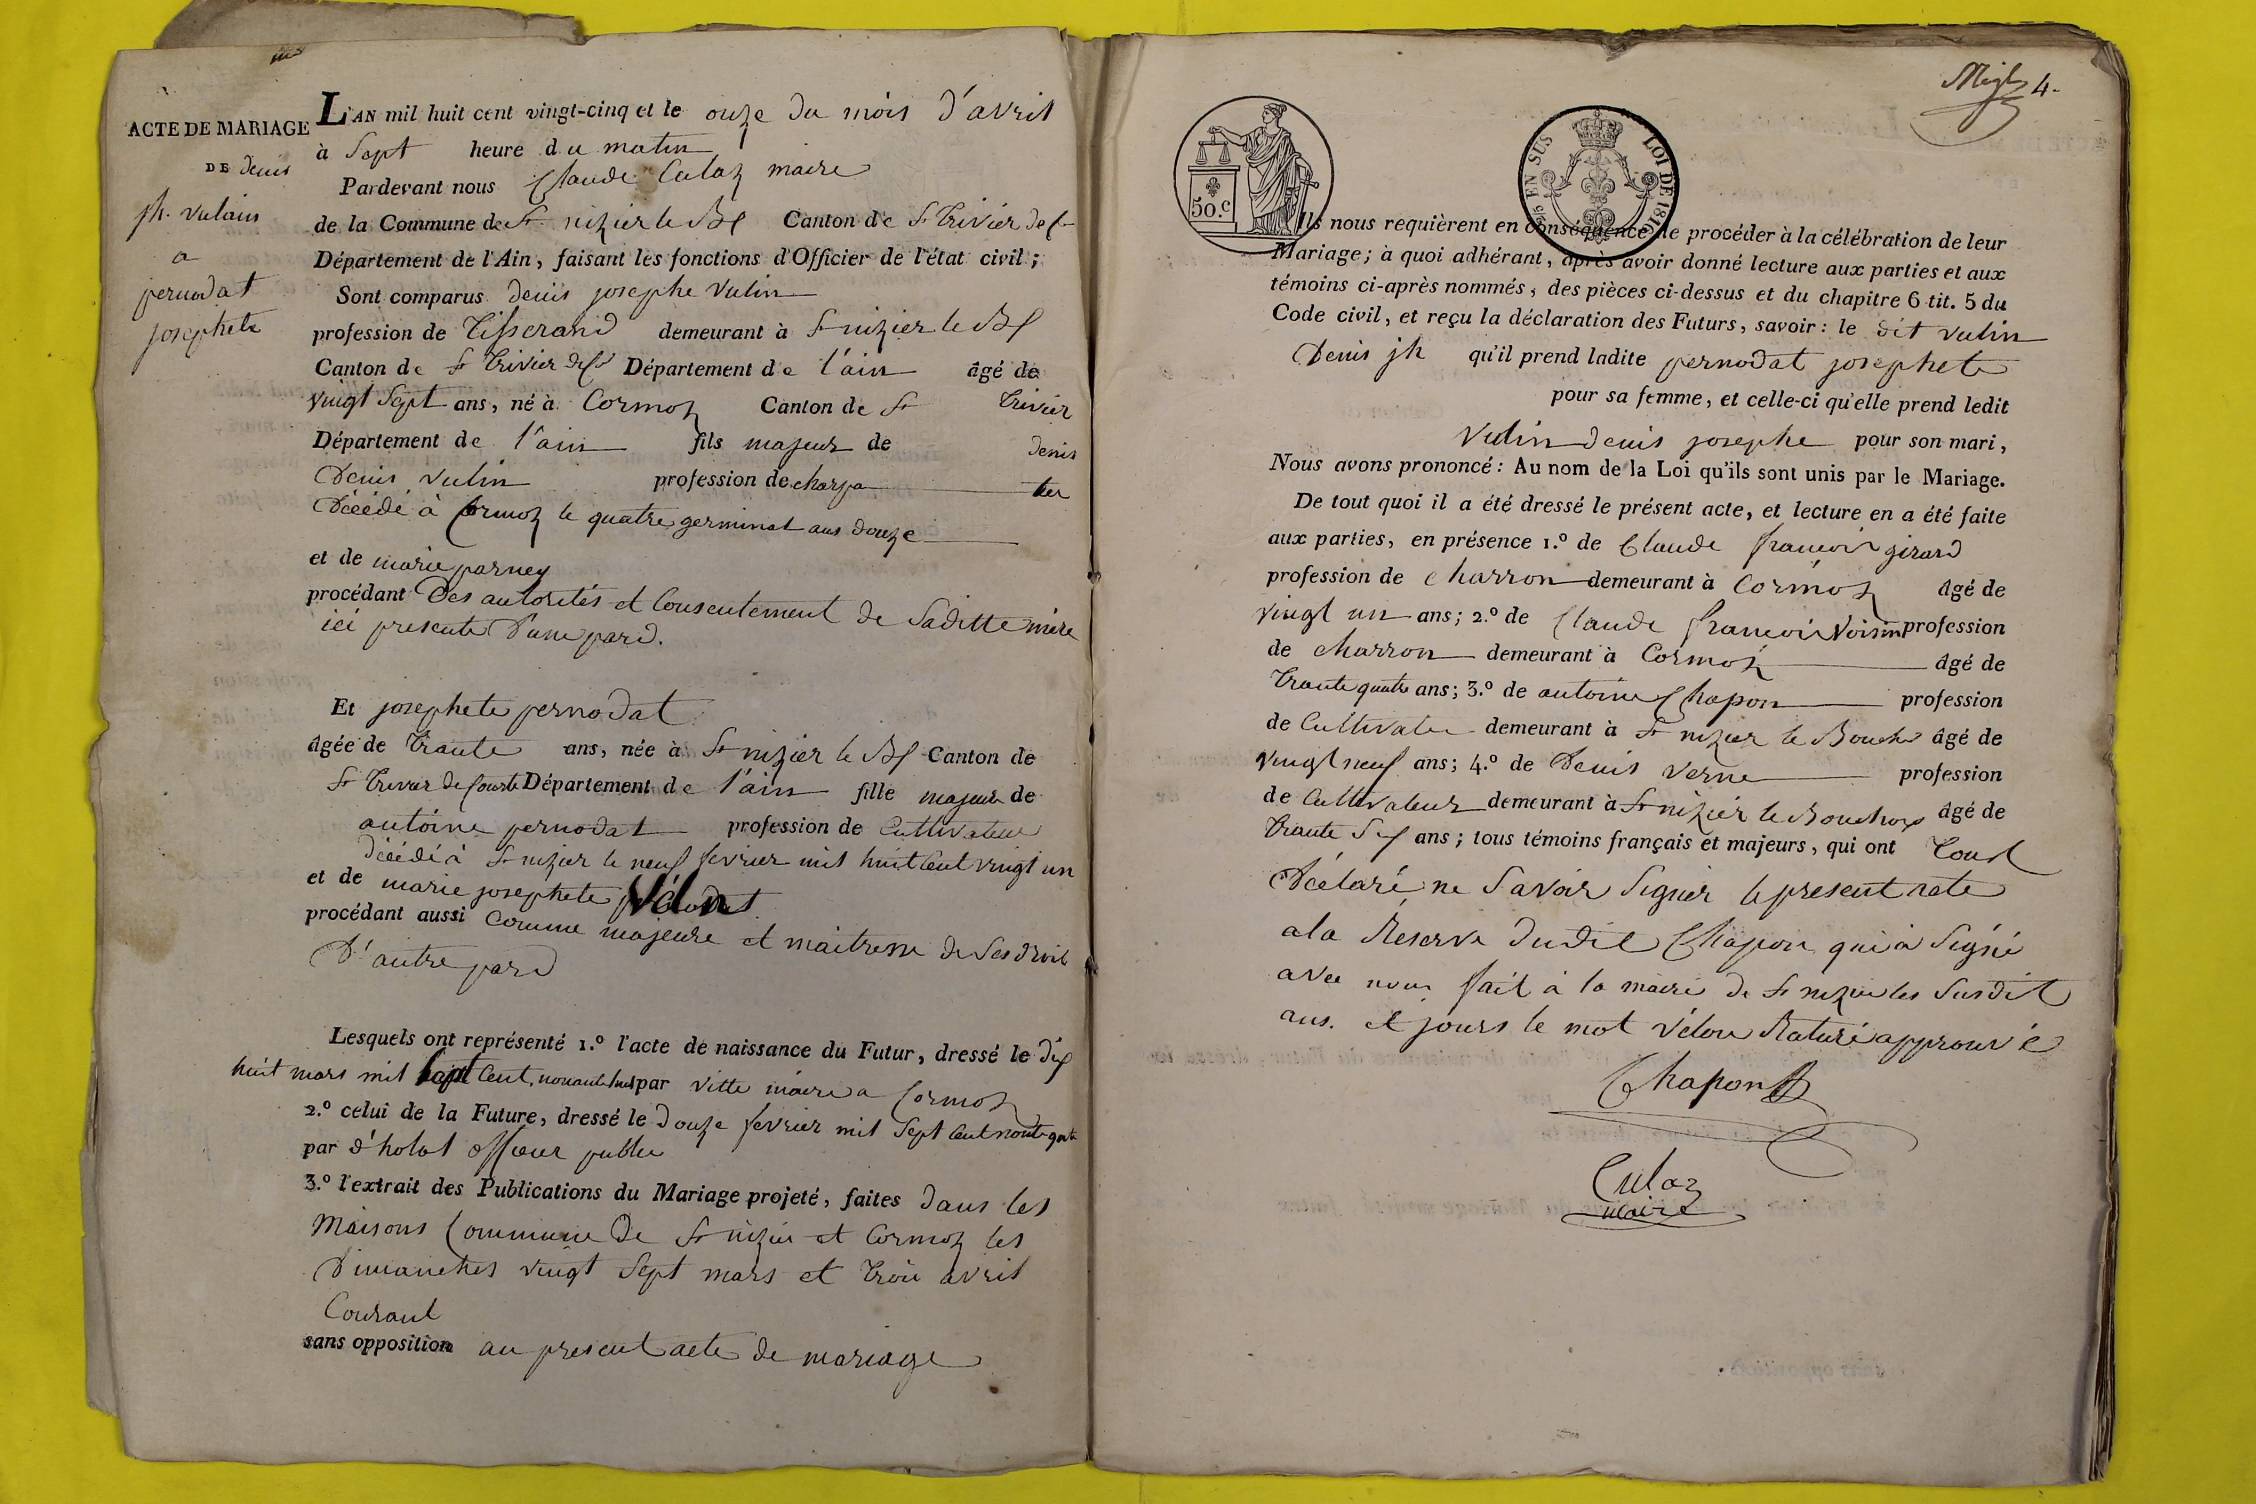 ACTE DE MARIAGE
DE denis
jh. vulain
a
pernodat
josephete
L'AN mil huit cent vingt-cinq et le onze du mois d'avril
à Sept heure du matin
Pardevant nous Claude Culaz maire
de la Commune de St nizier le Bx Canton de St Trivier de C
Département de l'Ain, faisant les fonctions d'Officier de l'état civil;
Sont comparus denis josephe Vulin
profession de Tisserand demeurant à St nizier le Bx
Canton de St Trivier de Cs Département de l'ain âgé de
vingt Sept ans, né à Cormoz Canton de St Trivier
Département de l'ain fils majeur de denis
Denis vulin profession de charpa ter
Décédé à Cormoz le quatre germinal ans douze
et de marie parney
procédant Des autorités et Consentement de Saditte mère
ici presente D'une pard.
Et josephete pernodat
âgée de Trante ans, née à St nizier le Bx Canton de
St Trivier de Courte Département de l'ain fille majeure de
antoine pernodat profession de Cultivateur
Décédé à St nizier le neuf fevrier mil huit Cent vingt un
et de marie josephete Vélon
procédant aussi Comme majeure et maitresse de Ses droit
D'autre pard
Lesquels ont représenté 1.º l'acte de naissance du Futur, dressé le dix
huit mars mil Sept Cent nonante huit par Vitte maire a Cormoz
2.º celui de la Future, dressé le Douze fevrier mil Sept Cent
par d'holot officier public
3.º l'extrait des Publications du Mariage projeté, faites Dans les
Maisons Commune De St nizier et Cormoz les
Dimanches vingt Sept mars et Trois avril
Courant
sans opposition au present acte de mariage
4.
50.c
EN SUS LOI DE 1816
Ils nous requièrent en conséquence de procéder à la célébration de leur
Mariage; à quoi adhérant, après avoir donné lecture aux parties et aux
témoins ci-après nommés, des pièces ci-dessus et du chapitre 6 tit. 5 du
Code civil, et reçu la déclaration des Futurs, savoir: le dit vulin
Denis jh qu'il prend ladite pernodat josephete
pour sa femme, et celle-ci qu'elle prend ledit
Vulin denis josephe pour son mari,
Nous avons prononcé: Au nom de la Loi qu'ils sont unis par le Mariage.
De tout quoi il a été dressé le présent acte, et lecture en a été faite
aux parties, en présence 1.º de Claude francois girard
profession de charron demeurant à Cormoz âgé de
vingt un ans; 2.º de Claude francois Voisin profession
de charron demeurant à Cormoz âgé de
Trante quatre ans; 3.º de antoine Chapon profession
de Cultivateur demeurant à St nizier le Bouchx âgé de
vingt neuf ans; 4.º de Denis Verne profession
de Cultivateur demeurant à St nizier le Bouchoux âgé de
Trante Six ans; tous témoins français et majeurs, qui ont Tous
Déclaré ne Savoir Signer le present acte
ala Réserve dudit Chapon qui a Signé
avec nous fait à la mairie de St nizier les Susdit
ans. et jours le mot Vélon Raturé approuvé
Chapon
Culaz
maire